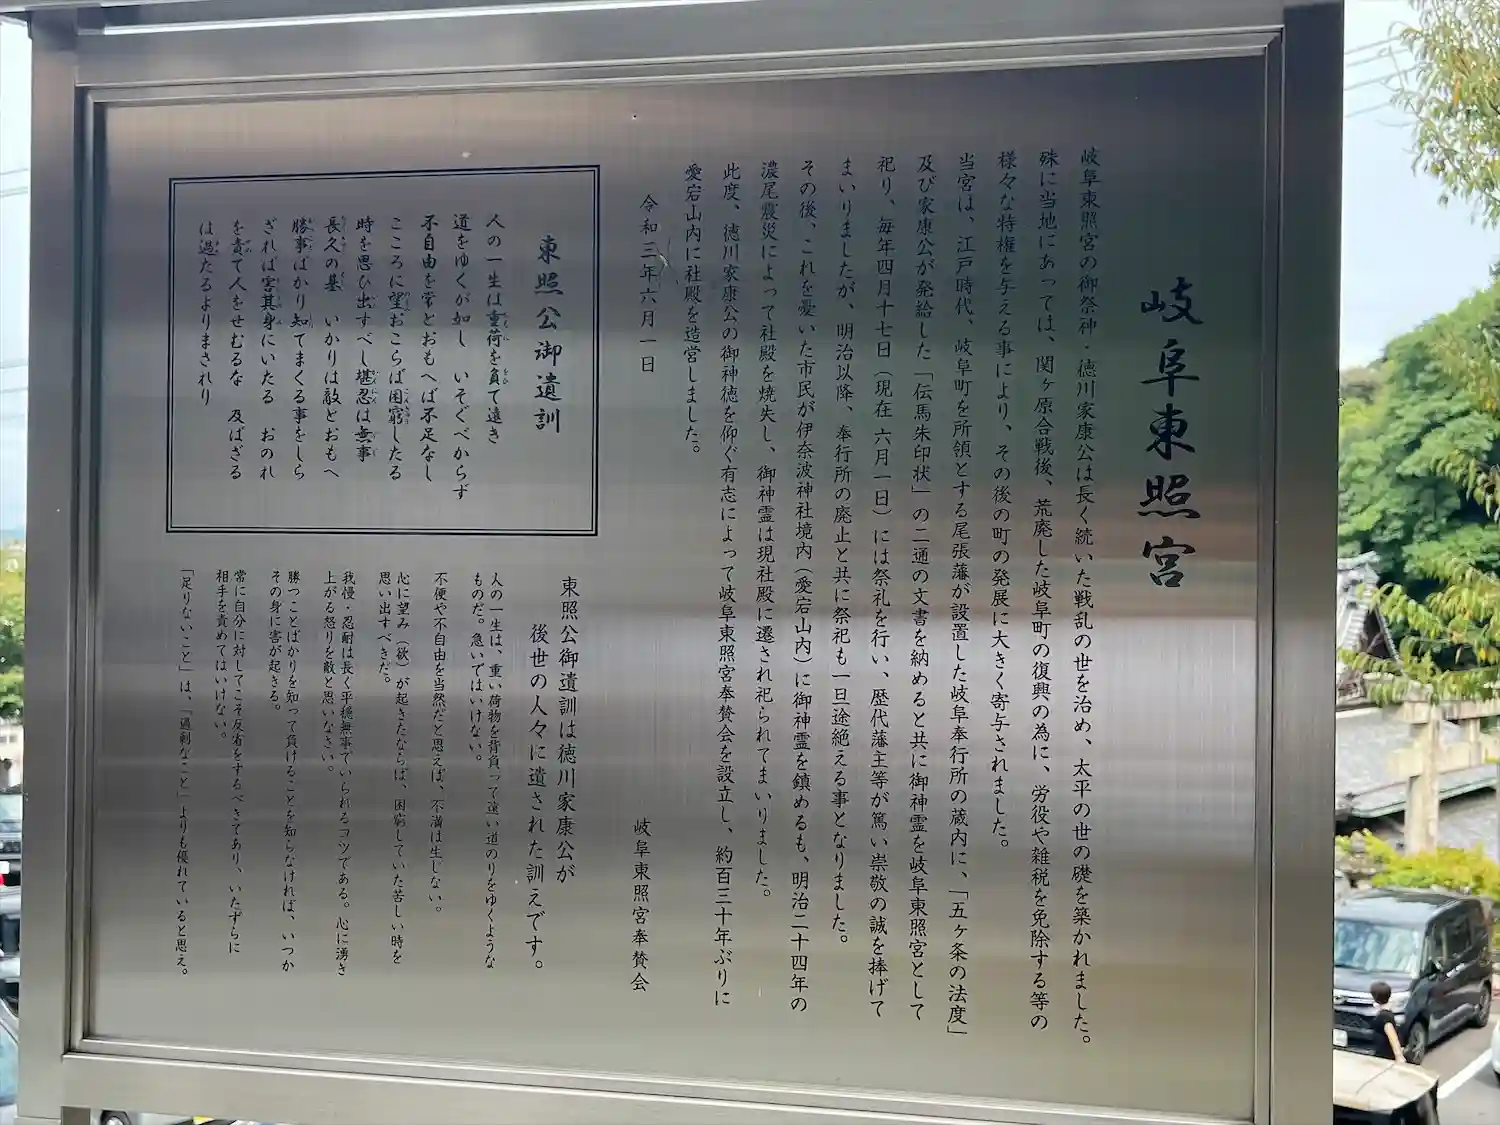 岐阜東照宮
岐阜東照宮の御祭神・徳川家康公は長く続いた戦乱の世を治め、太平の世の礎を築かれました。
殊に当地にあっては、関ヶ原合戦後、荒廃した岐阜町の復興の為に、労役や雑税を免除する等の
様々な特権を与える事により、その後の町の発展に大きく寄与されました。
当宮は、江戸時代、岐阜町を所領とする尾張藩が設置した岐阜奉行所の蔵内に、「五ヶ条の法度」
及び家康公が発給した「伝馬朱印状」の二通の文書を納めると共に御神霊を岐阜東照宮として
祀り、毎年四月十七日（現在 六月一日）には祭礼を行い、歴代藩主等が篤い崇敬の誠を捧げて
まいりましたが、明治以降、奉行所の廃止と共に祭祀も一旦途絶える事となりました。
その後、これを憂いた市民が伊奈波神社境内（愛宕山内）に御神霊を鎮めるも、明治二十四年の
濃尾震災によって社殿を焼失し、御神霊は現社殿に遷され祀られてまいりました。
此度、徳川家康公の御神徳を仰ぐ有志によって岐阜東照宮奉賛会を設立し、約百三十年ぶりに
愛宕山内に社殿を造営しました。
令和三年六月一日
岐阜東照宮奉賛会
東照公御遺訓
人の一生は重荷を負て遠き
道をゆくが如し いそぐべからず
不自由を常とおもへば不足なし
こころに望おこらば困窮したる
時を思ひ出すべし堪忍は無事
長久の基 いかりは敵とおもへ
勝事ばかり知てまくる事をしら
ざれば害其身にいたる おのれ
を責て人をせむるな 及ばざる
は過たるよりまされり
東照公御遺訓は徳川家康公が
後世の人々に遺された訓えです。
人の一生は、重い荷物を背負って遠い道のりをゆくような
ものだ。急いではいけない。
不便や不自由を当然だと思えば、不満は生じない。
心に望み（欲）が起きたならば、困窮していた苦しい時を
思い出すべきだ。
我慢・忍耐は長く平穏無事でいられるコツである。心に湧き
上がる怒りを敵と思いなさい。
勝つことばかりを知って負けることを知らなければ、いつか
その身に害が起きる。
常に自分に対してこそ反省をするべきであり、いたずらに
相手を責めてはいけない。
「足りないこと」は、「過剰なこと」よりも優れていると思え。